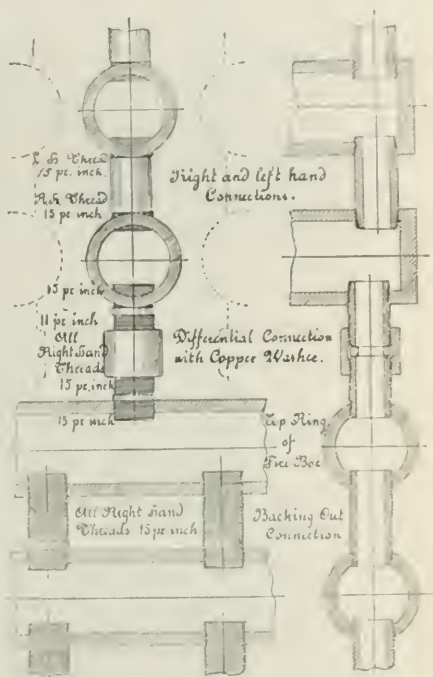 L H Thread
15 pr. inch.
R.h Thread
15 pr inch
Right and left hand
Connections.
15 pr inch
11 pr inch
All
Right hand
Threads
15 pr. inch
15 pr inch
Differential Connection
with Copper Washer.
Top Ring
of
Fire Box
All Right hand
Threads 15 pr inch
Backing Out
Connection